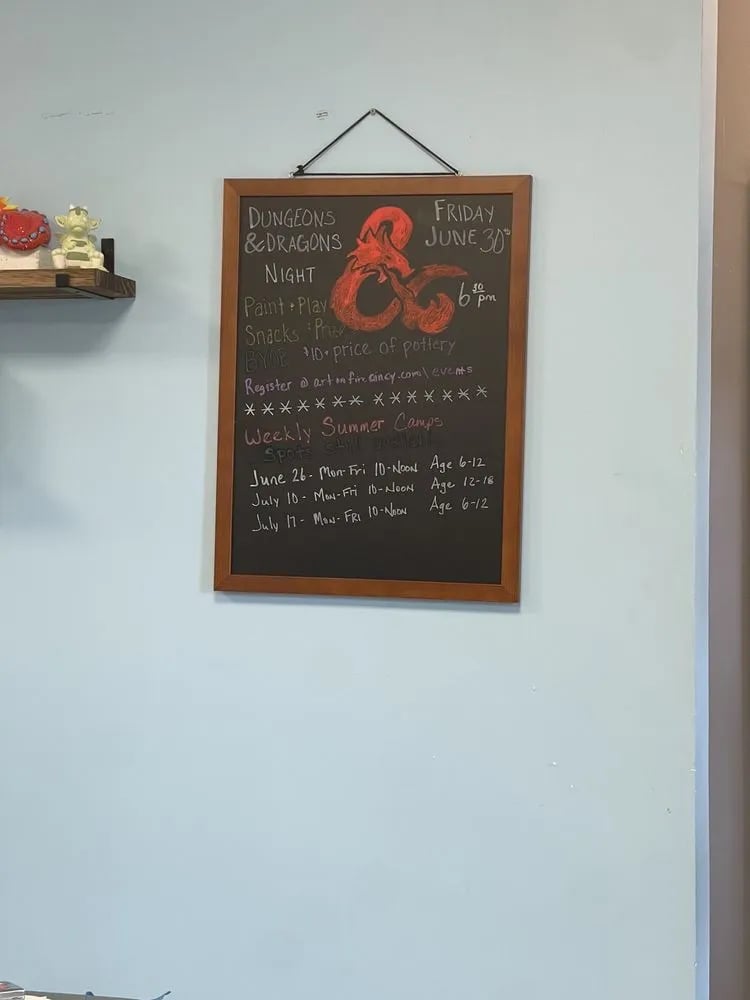 DUNGEONS
& DRAGONS
NIGHT
FRIDAY
JUNE 30th
6 30 pm
Paint + Play
Snacks
BYOB $10 + price of pottery
Register @ artonfirecincy.com\events
* * * * * * * * * * * * *
Weekly Summer Camps
Spots still
June 26 - Mon-Fri 10-Noon Age 6-12
July 10 - Mon-Fri 10-Noon Age 12-18
July 17 - Mon-Fri 10-Noon Age 6-12